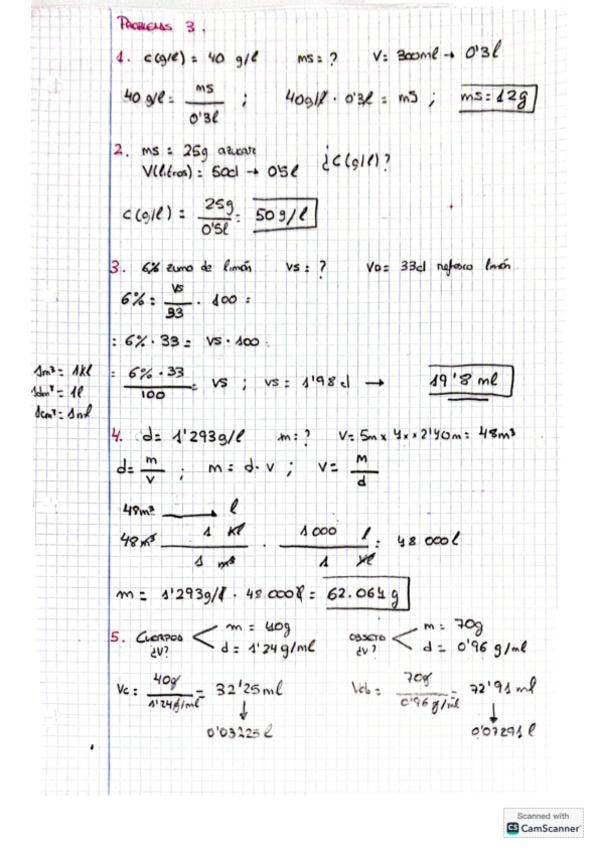 PROBLEMAS 3.
1. c(g/l) = 40 g/l ms = ? V = 300ml → 0'3l
40 g/l = ms / 0'3l ; 40g/l · 0'3l = ms ; ms = 12g
2. ms = 25g azucar
V(litros) = 50cl → 0'5l ¿C(g/l)?
c(g/l) = 25g / 0'5l = 50g/l
3. 6% zumo de limón vs = ? VD = 33cl refresco limón.
6% = vs / 33 · 100 =
= 6% · 33 = vs · 100 =
= 6% · 33 / 100 = vs ; vs = 1'98 cl → 19'8 ml
1m³ = 1kl
1dm³ = 1l
1cm³ = 1ml
4. d = 1'293g/l m = ? V = 5m x 4m x 2'40m = 48m³
d = m / v ; m = d · v ; v = m / d
48m³ → l
48m³ 1 kl / 1 m³ · 1000 l / 1 kl = 48 000l
m = 1'293g/l · 48.000l = 62.064 g
5. CUERPOS ¿V? m = 40g d = 1'24g/ml OBJETO ¿V? m = 70g d = 0'96 g/ml
Vc = 40g / 1'24g/ml = 32'25ml Vob = 70g / 0'96 g/ml = 72'91 ml
↓ 0'03225l ↓ 0'07291 l
Scanned with
CS CamScanner